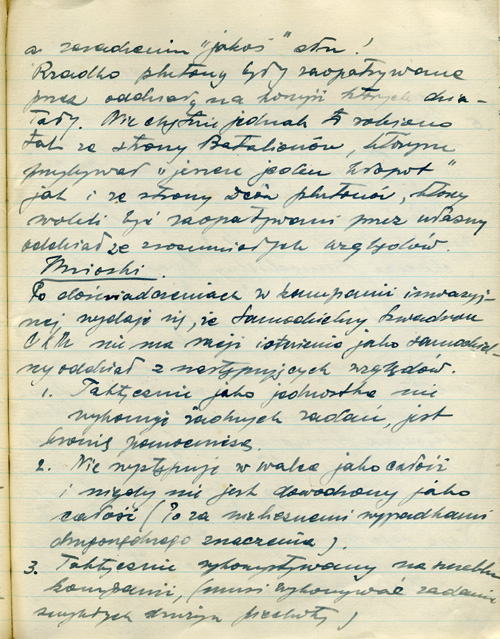 z zasadzeniu "jakoś" stu!
Rzadko plutony były zaopatrywane
przez oddziały na korzyść których dzia-
łały. Nie chętnie jednak to robiono
tak ze strony Batalionów, którym
przybywał "jeszcze jeden kłopot"
jak i ze strony dców plutonów, którzy
woleli być zaopatrywani przez własny
oddział ze zrozumiałych względów.
Wnioski.
Po doświadczeniach w kampanii inwazyj-
nej wydaje się, że Samodzielny Szwadron
CKM nie ma racji istnienia jako samodziel-
ny oddział z następujących względów.
1. Taktycznie jako jednostka nie
wykonuje żadnych zadań, jest
bronią pomocniczą.
2. Nie występuje w walce jako całość
i nigdy nie jest dowodzony jako
całość (Po za nielicznemi wypadkami
drugorzędnego znaczenia).
3. Taktycznie wykorzystywany na szczeblu
kompanii, (musi wykonywać zadania
zwykłych drużyn piechoty)